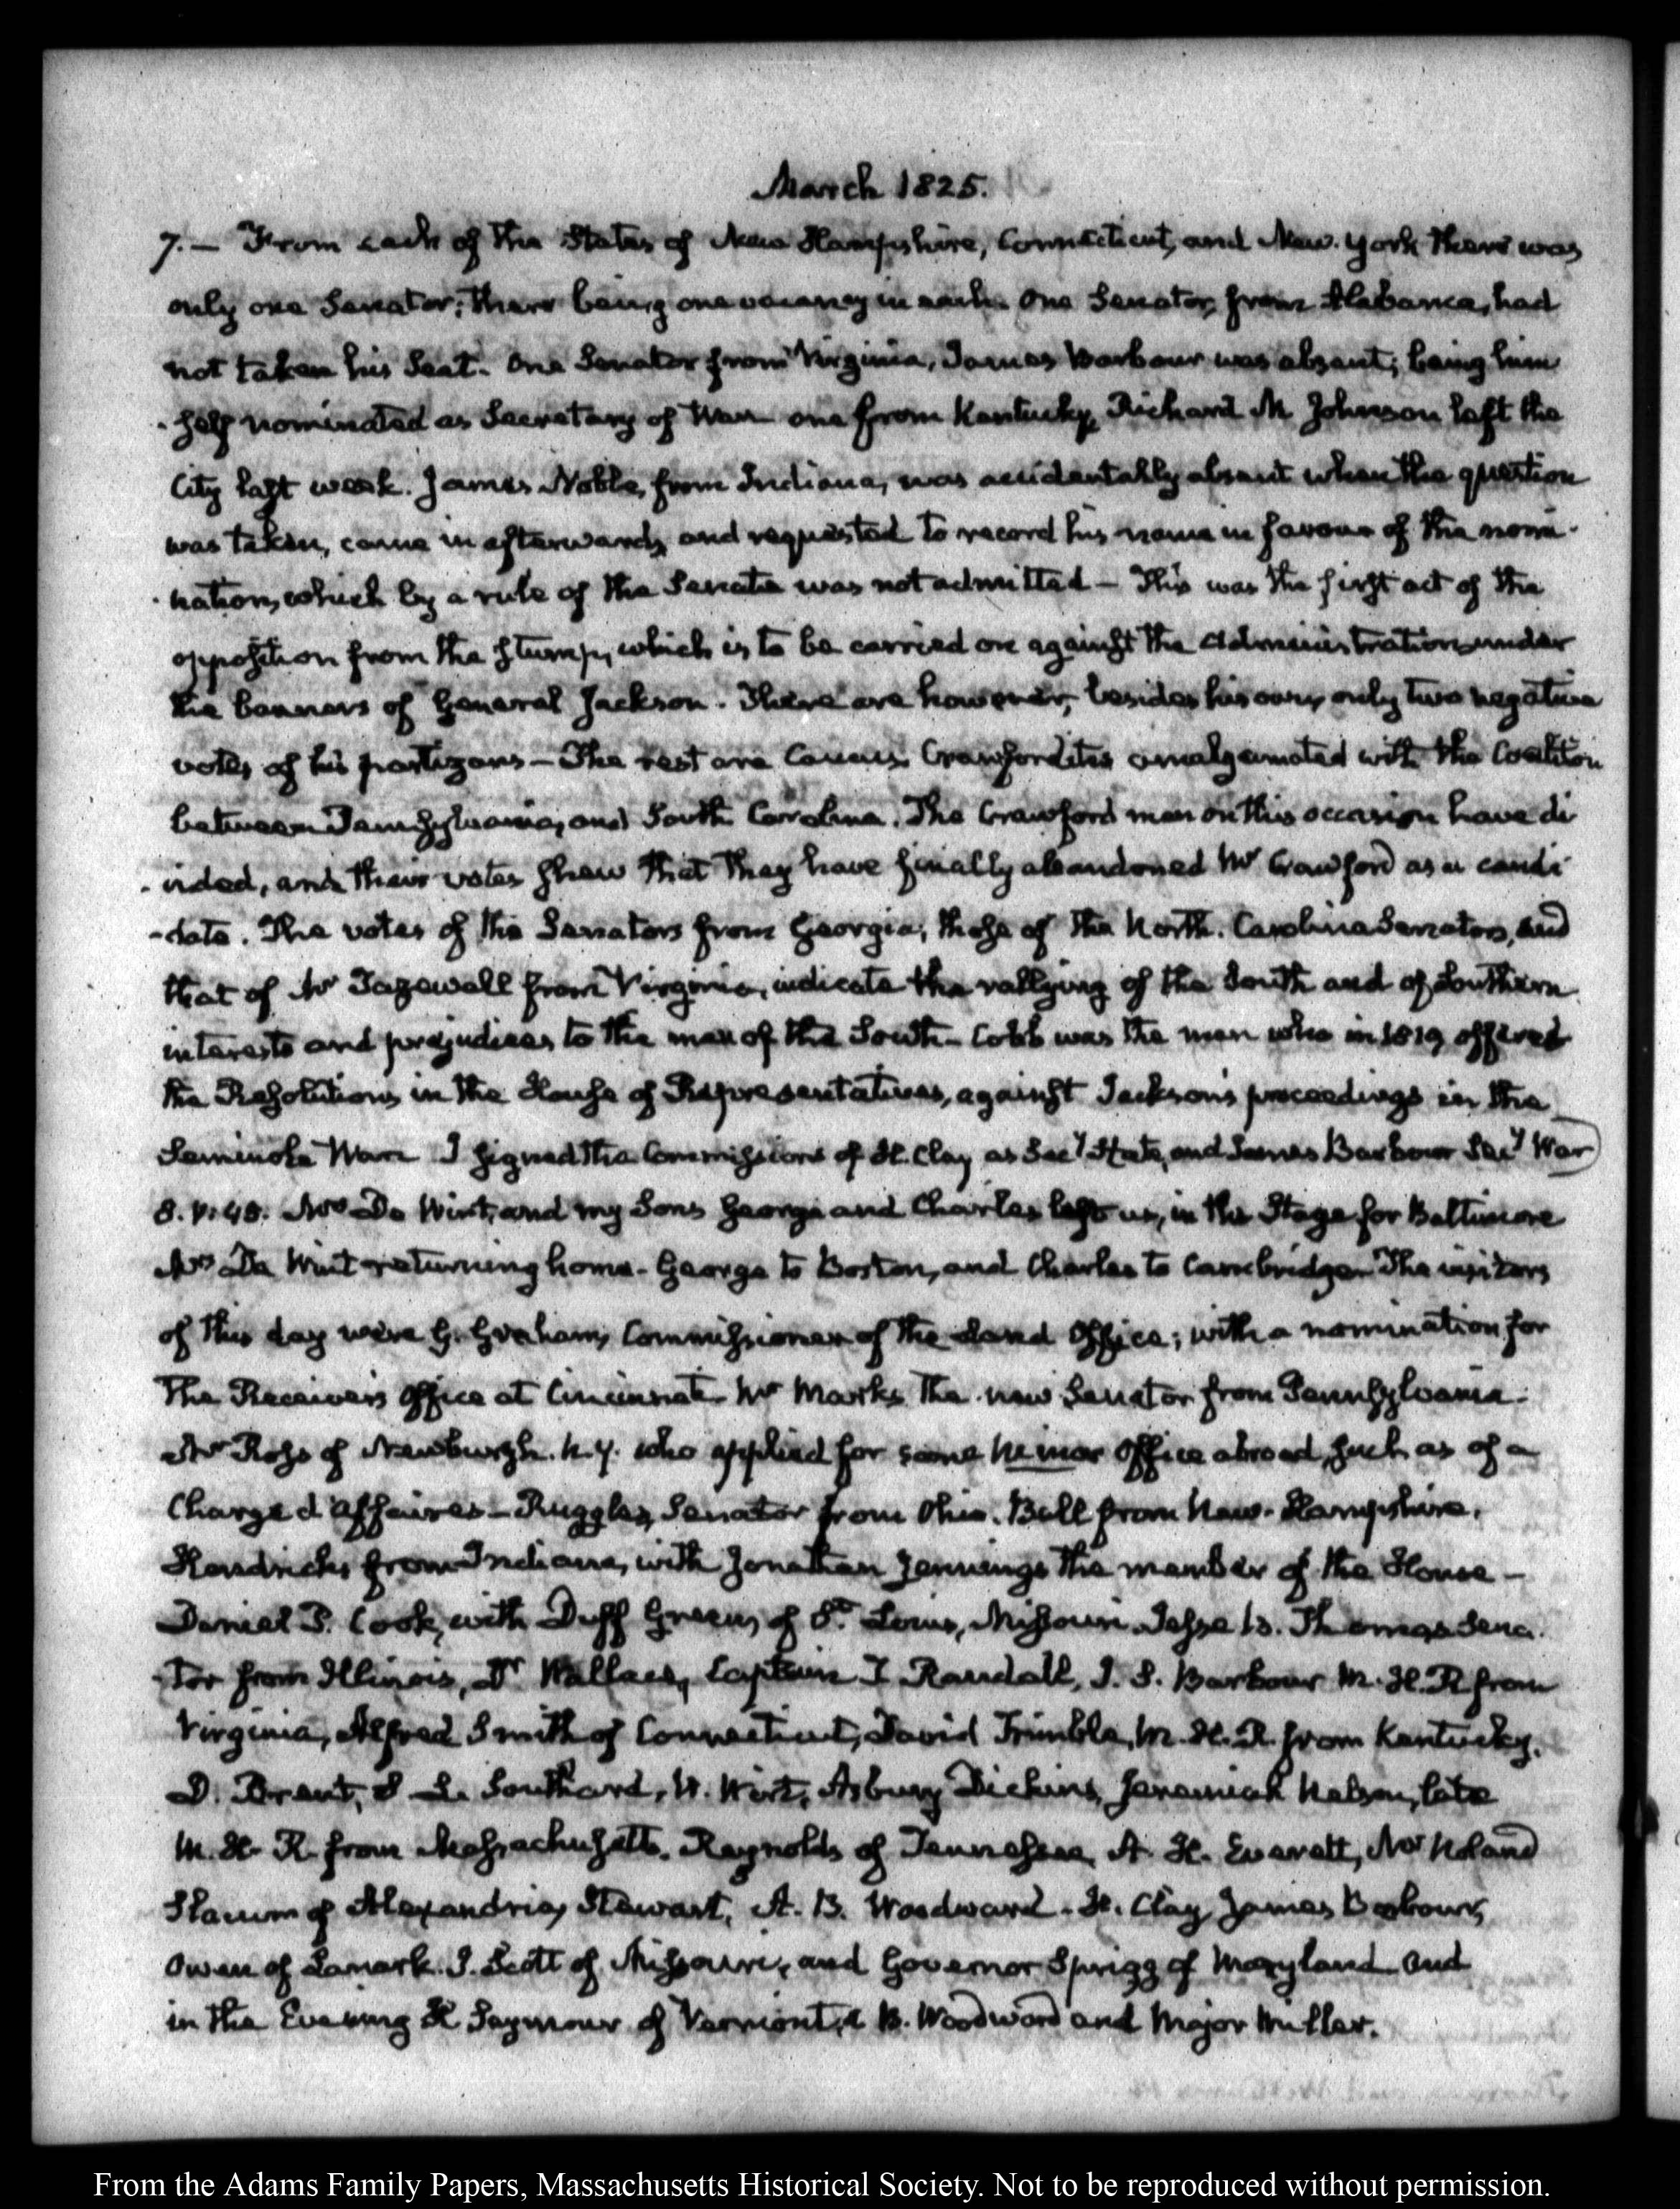 March 1825.
7.— From each of the States of New Hampshire, Connecticut, and New-York there was
only one Senator; there being one vacancy in each. One Senator, from Alabama, had
not taken his Seat. One Senator from Virginia, James Barbour was absent; being him
-self nominated as Secretary of War one from Kentucky, Richard M Johnson left the
City last week. James Noble, from Indiana, was accidentally absent when the question
was taken, came in afterwards, and requested to record his name in favour of the nomi-
-nation, which by a rule of the Senate was not admitted — This was the first act of the
opposition from the stump, which is to be carried on against the Administration under
the banners of General Jackson. There are however, besides his own, only two negative
votes of his partizans — The rest are Caucus Crawfordites amalgamated with the Coalition
between Pennsylvania, and South Carolina. The Crawford men on this occasion have di
-vided, and their votes shew that they have finally abandoned Mr Crawford as a candi
-date. The votes of the Senators from Georgia, those of the North-Carolina Senators, and
that of Mr Tazewell from Virginia, indicate the rallying of the South and of Southern
interests and prejudices to the man of the South — Cobb was the man who in 1819 offered
the Resolutions in the House of Representatives, against Jackson's proceedings in the
Seminole War. I signed the Commissions of H. Clay as Secy State, and James Barbour Secy War
8. V:45. Mrs De Wint, and my Sons George and Charles left us, in the Stage for Baltimore
Mrs De Wint returning home - George to Boston, and Charles to Cambridge. The visitors
of this day were G. Graham, Commissioner of the Land Office; with a nomination for
the Receiver's Office at Cincinnati. Mr Marks the new Senator from Pennsylvania.
Mr Ross of Newburgh. N.Y. who applied for some minor Office abroad, such as of a
Chargé d'affaires — Ruggles, Senator from Ohio. Bell from New-Hampshire,
Hendricks from Indiana, with Jonathan Jennings the member of the House —
Daniel P. Cook, with Duff Green, of St Louis, Missouri. Jesse B. Thomas Sena-
-tor from Illinois, Dr Wallace, Captain T Randall, J. S. Barbour M.H.R from
Virginia, Alfred Smith of Connecticut, David Trimble, M.H.R. from Kentucky,
D. Brent, S L. Southard, W. Wirt, Asbury Dickins, Jeremiah Nelson, late
M.H.R. from Massachusetts. Reynolds of Tennessee, A. H. Everett, Mr Noland
Slacum of Alexandria, Stewart, A. B. Woodward - H. Clay, James Barbour,
Owen of Lanark. J. Scott of Missouri, and Governor Sprigg of Maryland and
in the Evening H Seymour of Vermont, A B. Woodward and Major Miller.
From the Adams Family Papers, Massachusetts Historical Society. Not to be reproduced without permission.